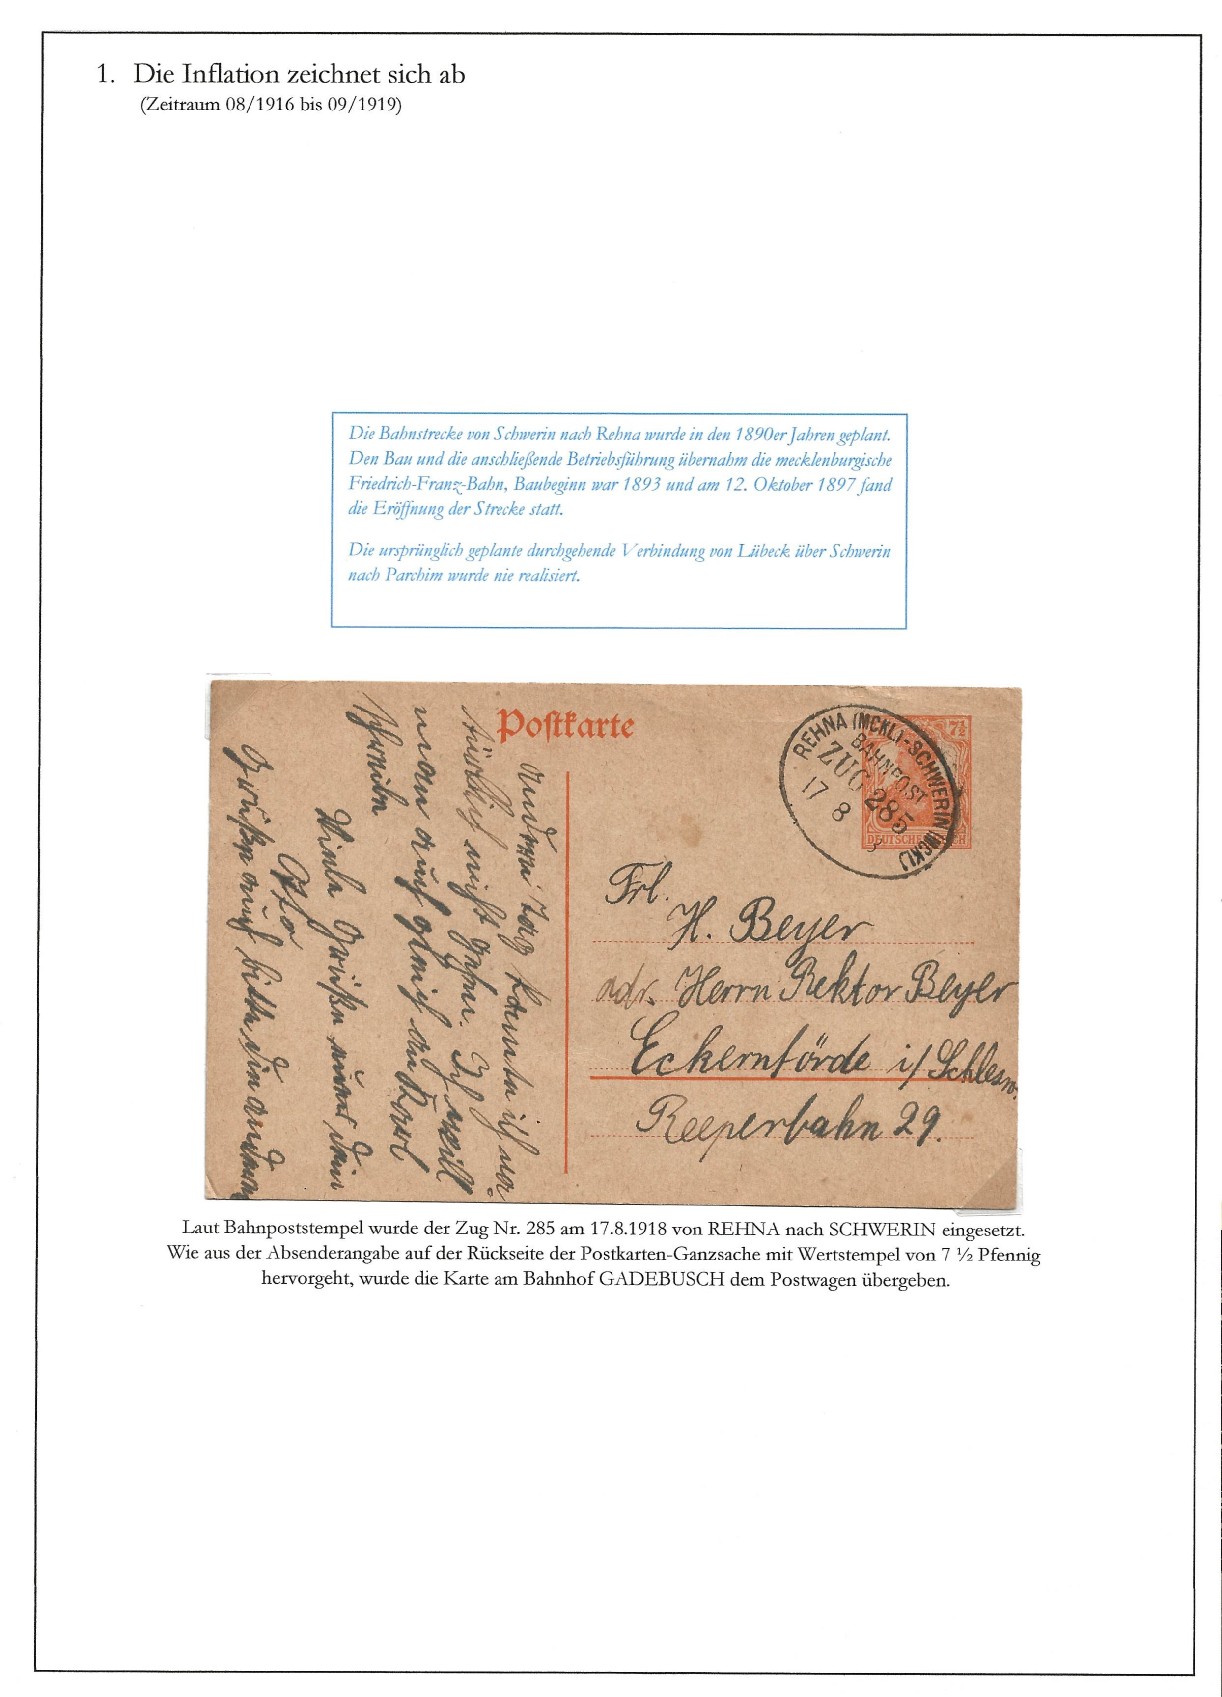 1. Die Inflation zeichnet sich ab
(Zeitraum 08/1916 bis 09/1919)
Die Bahnstrecke von Schwerin nach Rehna wurde in den 1890er Jahren geplant.
Den Bau und die anschließende Betriebsführung übernahm die mecklenburgische
Friedrich-Franz-Bahn, Baubeginn war 1893 und am 12. Oktober 1897 fand
die Eröffnung der Strecke statt.
Die ursprünglich geplante durchgehende Verbindung von Lübeck über Schwerin
nach Parchim wurde nie realisiert.
Postkarte
7½
DEUTSCHES REICH
REHNA (MCKL)-SCHWERIN (MCKL)
BAHNPOST
ZUG 285
17 8
Frl.
H. Beyer
adr. Herrn Rektor Beyer
Eckernförde i/Schlesw.
Reeperbahn 29.
andern Tag konnte ich na
türlich nicht gehn. Ich will
nun auch gleich an
schreiben
Viele Grüße
Otto
Grüße auch bitte
Laut Bahnpoststempel wurde der Zug Nr. 285 am 17.8.1918 von REHNA nach SCHWERIN eingesetzt.
Wie aus der Absenderangabe auf der Rückseite der Postkarten-Ganzsache mit Wertstempel von 7 ½ Pfennig
hervorgeht, wurde die Karte am Bahnhof GADEBUSCH dem Postwagen übergeben.